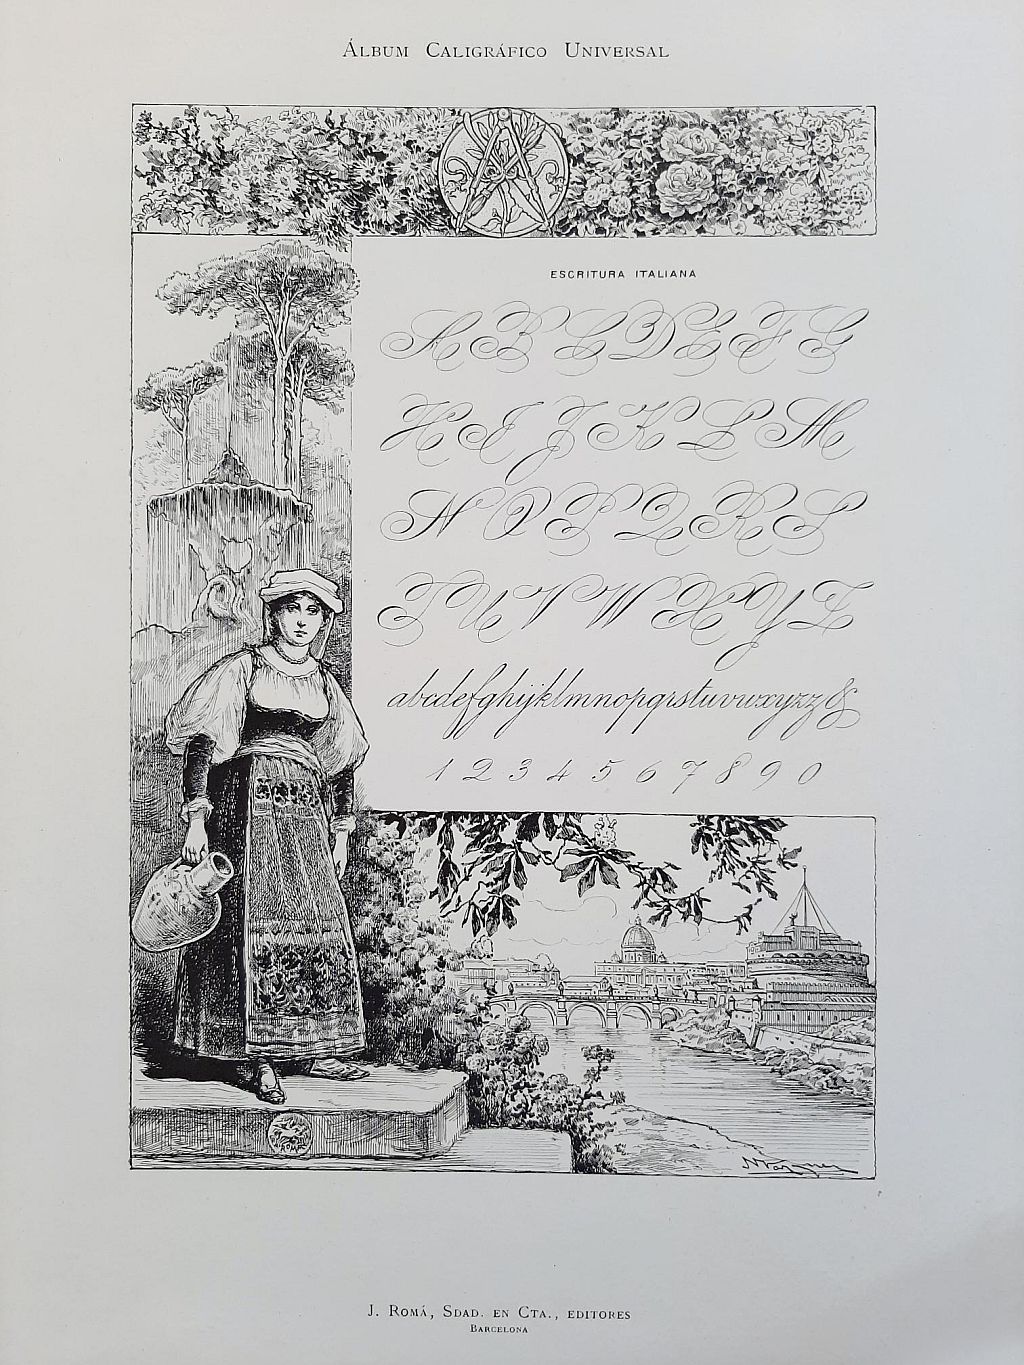 ÁLBUM CALIGRÁFICO UNIVERSAL
ESCRITURA ITALIANA
A B C D E F G
H I J K L M
N O P Q R S
T U V W X Y Z
abcdefghijklmnopqrstuvwxyzz&
1 2 3 4 5 6 7 8 9 0
ROMA
J. ROMÁ, SDAD. EN CTA., EDITORES
BARCELONA